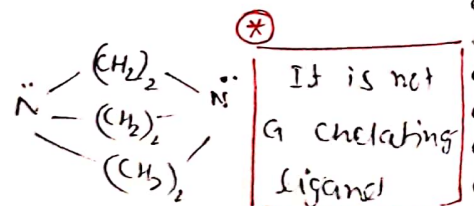 (CH₂)₂
N̈ (CH₂)₂ N̈
(CH₂)₂
*
It is not
a chelating
ligand